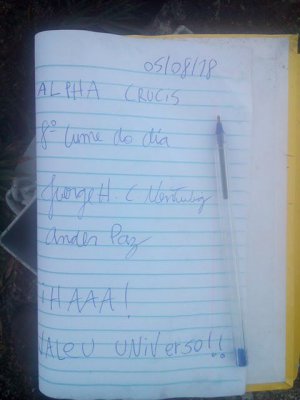 05/08/18
ALPHA CRUCIS
8º Cume do dia
George H. C
Ander Paz
iHAAA!
VALEU UNIVERSO!!